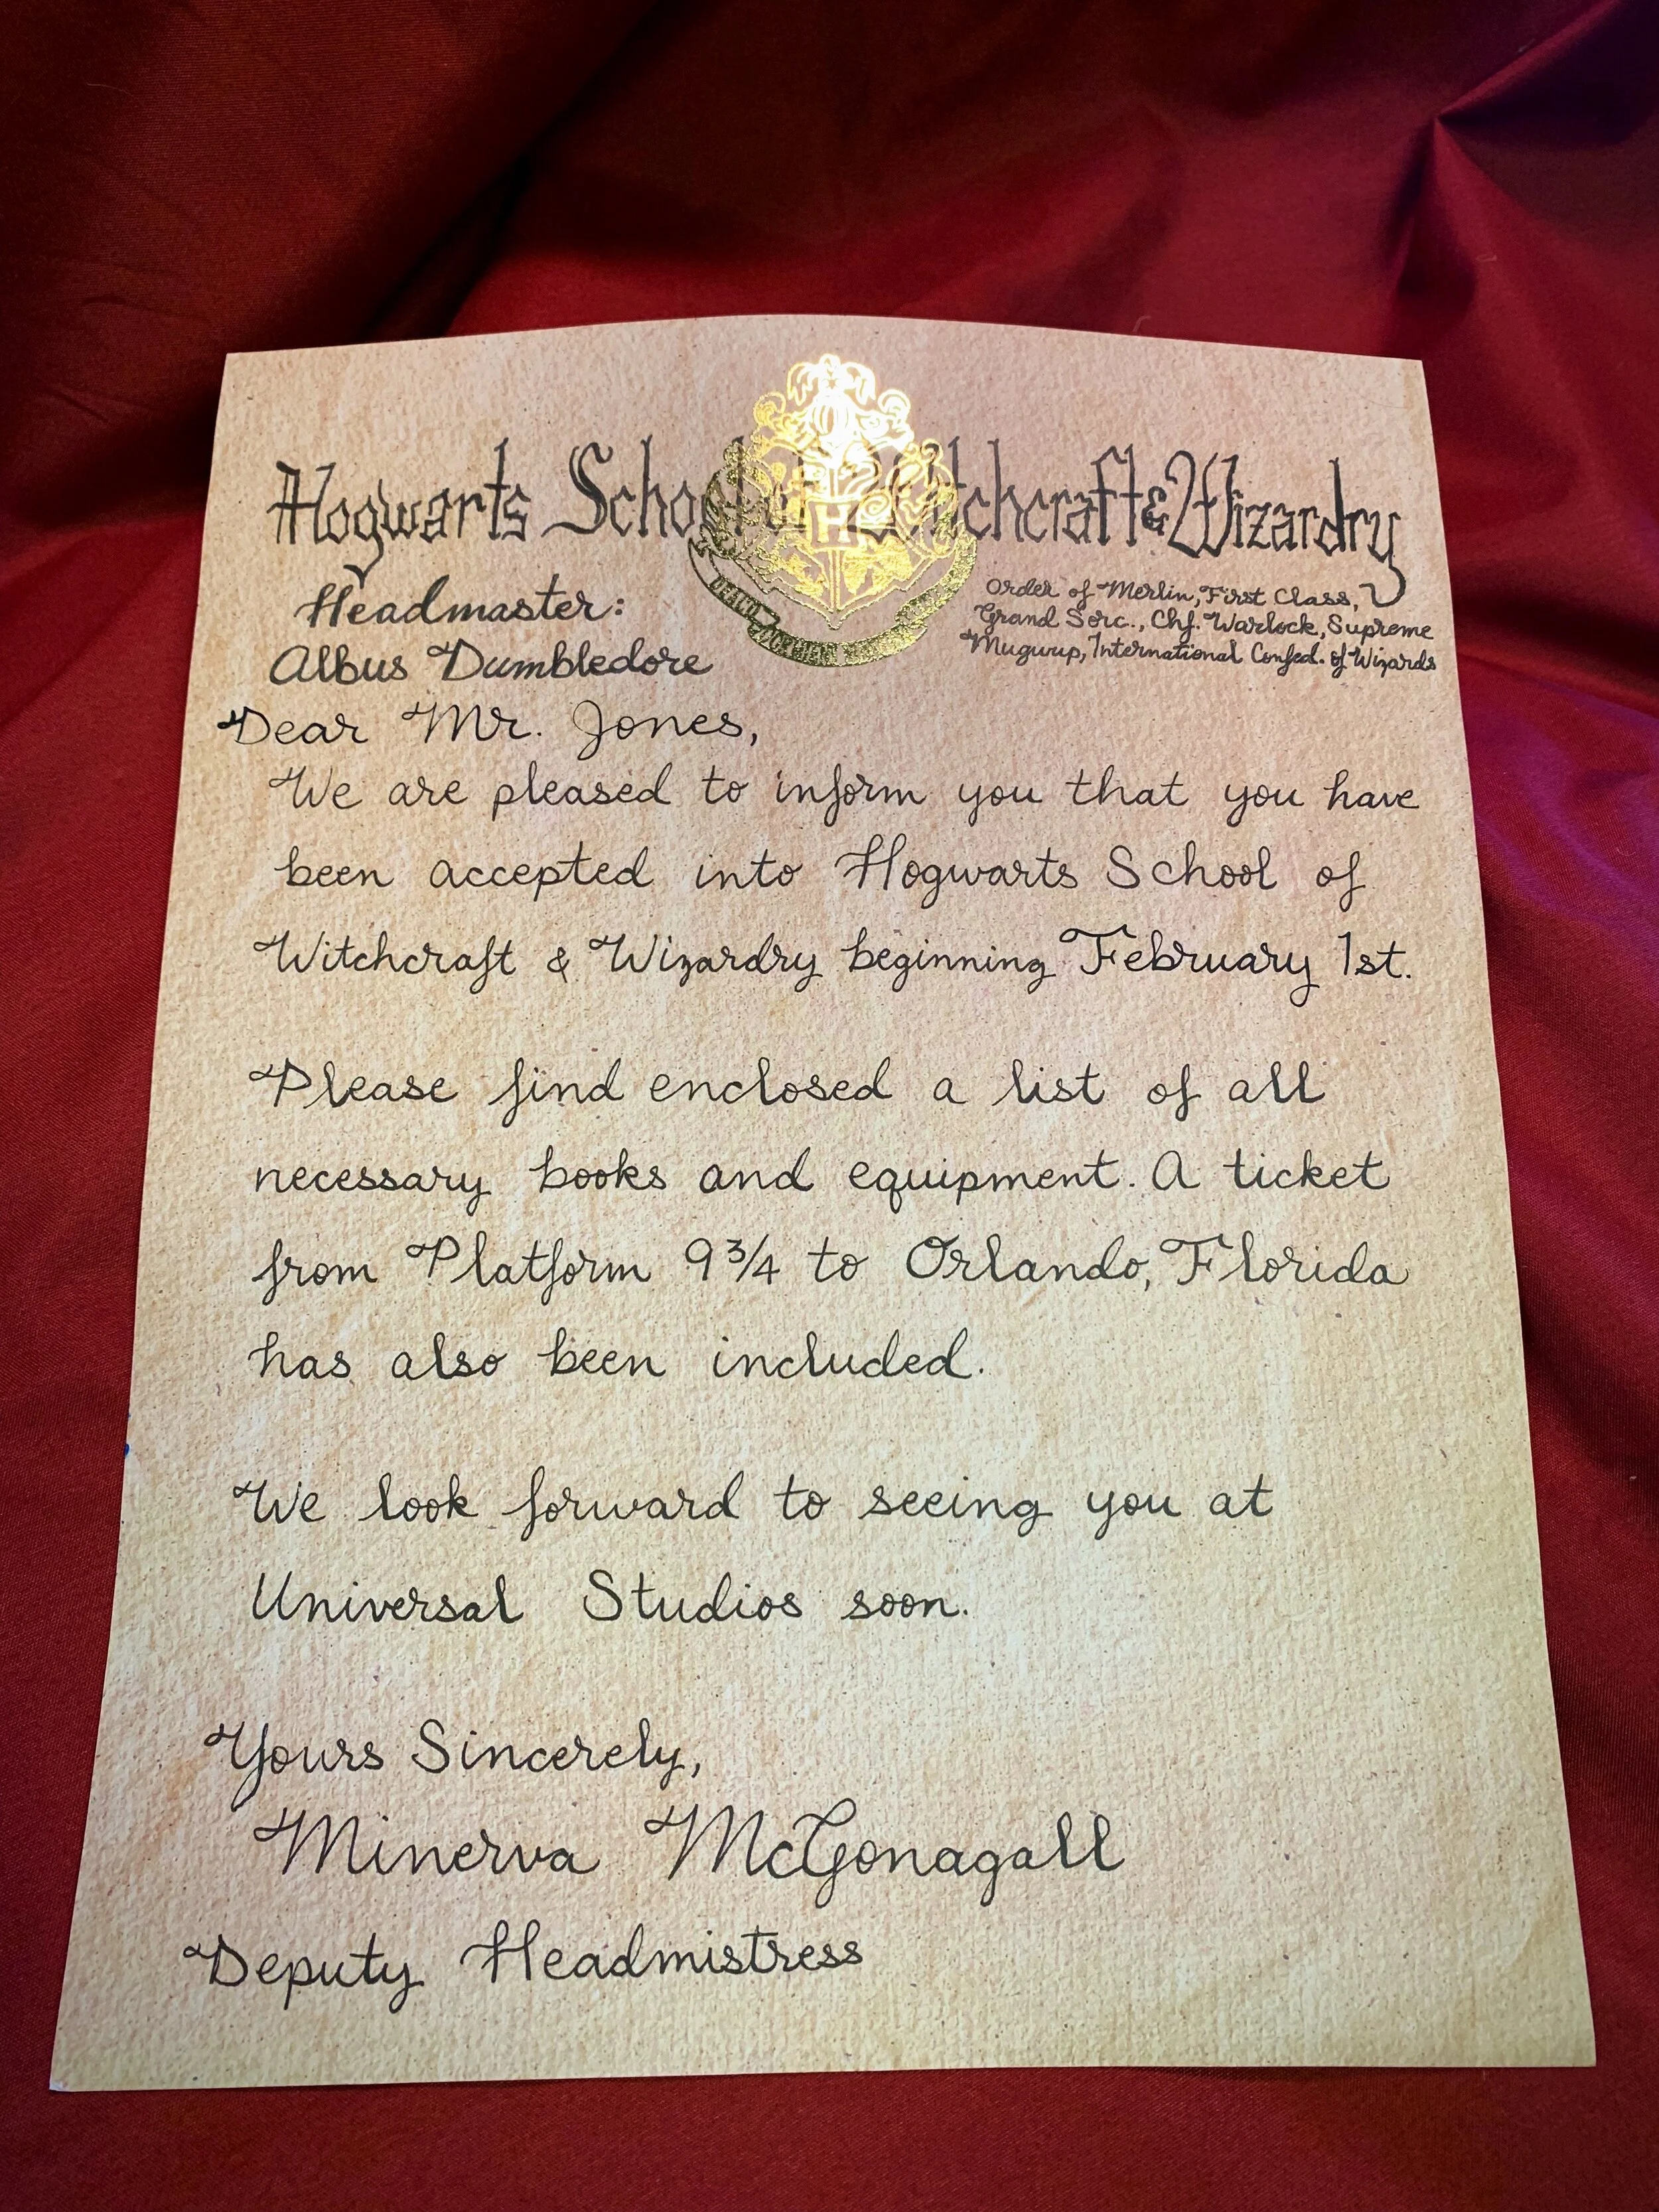 Hogwarts School of Witchcraft & Wizardry
Headmaster:
Albus Dumbledore
Order of Merlin, First Class,
Grand Sorc., Chf. Warlock, Supreme
Mugwup, International Confed. of Wizards
DRACO DORMIENS
H
Dear Mr. Jones,
We are pleased to inform you that you have
been accepted into Hogwarts School of
Witchcraft & Wizardry beginning February 1st.
Please find enclosed a list of all
necessary books and equipment. A ticket
from Platform 9 3/4 to Orlando, Florida
has also been included.
We look forward to seeing you at
Universal Studios soon.
Yours Sincerely,
Minerva McGonagall
Deputy Headmistress